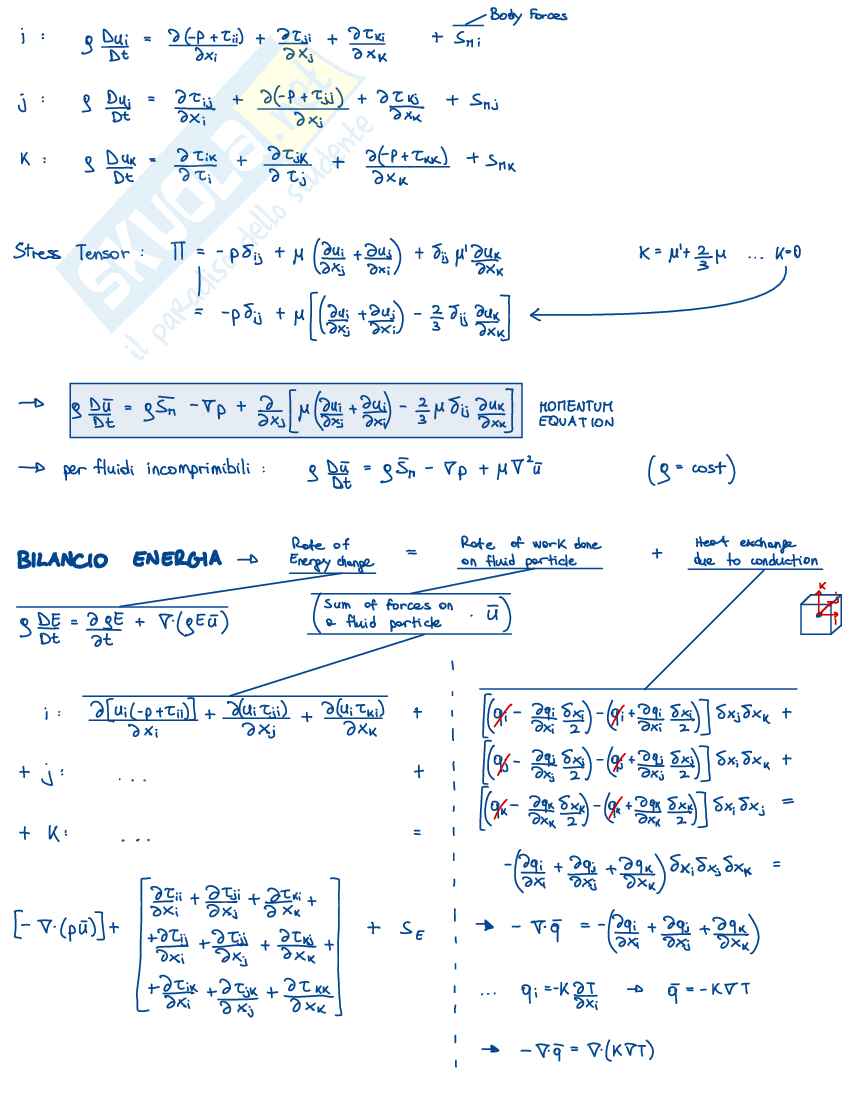 Body Forces
i : ρ Dui/Dt = ∂(-p + τii)/∂xi + ∂τji/∂xj + ∂τki/∂xk + SMi
j : ρ Duj/Dt = ∂τij/∂xi + ∂(-p + τjj)/∂xj + ∂τkj/∂xk + SMj
K : ρ DuK/Dt = ∂τiK/∂τi + ∂τjK/∂τj + ∂(-p + τKK)/∂xK + SMK
SKUOLA.net
il paradiso dello studente
Stress Tensor : Π = - pδij + μ (∂ui/∂xj + ∂uj/∂xi) + δij μ' ∂uK/∂xK K = μ' + 2/3 μ ... K=0
= -pδij + μ [(∂ui/∂xj + ∂uj/∂xi) - 2/3 δij ∂uK/∂xK]
→ ρ Dū/Dt = ρS̄M - ∇p + ∂/∂xj [μ (∂ui/∂xj + ∂uj/∂xi) - 2/3 μ δij ∂uK/∂xK] MOMENTUM EQUATION
→ per fluidi incomprimibili : ρ Dū/Dt = ρS̄M - ∇p + μ∇²ū (ρ = cost)
BILANCIO ENERGIA → Rate of Energy change = Rate of work done on fluid particle + Heat exchange due to conduction
ρ DE/Dt = ∂ρE/∂t + ∇·(ρEū) (Sum of forces on a fluid particle · ū)
K
j
i
i: ∂[ui(-p+τii)]/∂xi + ∂(uiτji)/∂xj + ∂(uiτki)/∂xK +
+ j: ... +
+ K: ... =
[- ∇·(pū)] + [∂τii/∂xi + ∂τji/∂xj + ∂τKi/∂xK +
+ ∂τij/∂xi + ∂τjj/∂xj + ∂τKj/∂xK +
+ ∂τiK/∂xi + ∂τjK/∂xj + ∂τKK/∂xK] + SE
[(qi - ∂qi/∂xi δxi/2) - (qi + ∂qi/∂xi δxi/2)] δxjδxK +
[(qj - ∂qj/∂xj δxj/2) - (qj + ∂qj/∂xj δxj/2)] δxiδxK +
[(qK - ∂qK/∂xK δxK/2) - (qK + ∂qK/∂xK δxK/2)] δxiδxj =
-(∂qi/∂xi + ∂qj/∂xj + ∂qK/∂xK) δxiδxjδxK =
→ - ∇·q̄ = -(∂qi/∂xi + ∂qj/∂xj + ∂qK/∂xK)
... qi = -K ∂T/∂xi → q̄ = -K∇T
→ -∇·q̄ = ∇·(K∇T)